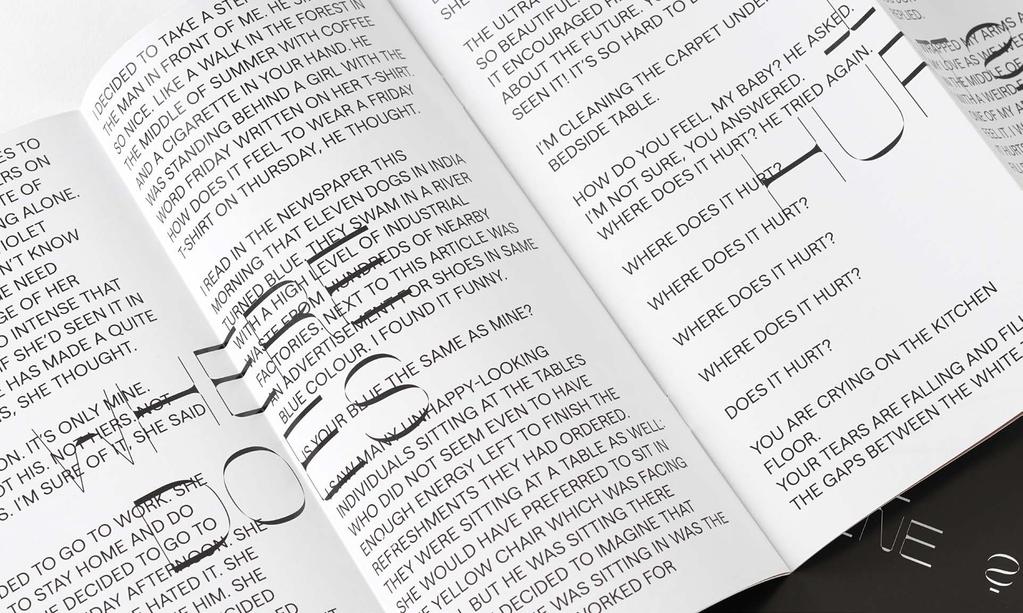 ES TO
ERS ON
TE OF
NG ALONE.
IOLET
N'T KNOW
E NEED
GE OF HER
O INTENSE THAT
F SHE'D SEEN IT IN
E HAS MADE A QUITE
S, SHE THOUGHT.
ON. IT'S ONLY MINE.
OT THIS. NOT HERS, NOT
S. I'M SURE OF IT, SHE SAID.
DED TO GO TO WORK. SHE
TO STAY HOME AND DO
HE DECIDED TO GO TO
DAY AFTERNOON. SHE
E HATED IT. SHE
E HIM. SHE
CIDED
DECIDED TO TAKE A STEP
THE MAN IN FRONT OF ME. HE
SO NICE. LIKE A WALK IN THE FOREST IN
THE MIDDLE OF SUMMER WITH COFFEE
AND A CIGARETTE IN YOUR HAND. HE
WAS STANDING BEHIND A GIRL WITH THE
WORD FRIDAY WRITTEN ON HER T-SHIRT.
HOW DOES IT FEEL TO WEAR A FRIDAY
T-SHIRT ON THURSDAY, HE THOUGHT.
I READ IN THE NEWSPAPER THIS
MORNING THAT ELEVEN DOGS IN INDIA
TURNED BLUE. THEY SWAM IN A RIVER
WITH A HIGH LEVEL OF INDUSTRIAL
WASTE FROM HUNDREDS OF NEARBY
FACTORIES. NEXT TO THIS ARTICLE WAS
AN ADVERTISEMENT FOR SHOES IN SAME
BLUE COLOUR. I FOUND IT FUNNY.
IS YOUR BLUE THE SAME AS MINE?
I SAW MANY UNHAPPY-LOOKING
INDIVIDUALS SITTING AT THE TABLES
WHO DID NOT SEEM EVEN TO HAVE
ENOUGH ENERGY LEFT TO FINISH THE
REFRESHMENTS THEY HAD ORDERED.
THEY WERE SITTING AT A TABLE AS WELL.
WOULD HAVE PREFERRED TO SIT IN
E YELLOW CHAIR WHICH WAS FACING
, BUT HE WAS SITTING THERE
DECIDED TO IMAGINE THAT
WAS SITTING IN WAS THE
WORKED FOR
DO
SHE
THE ULTRA
SO BEAUTIFUL
IT ENCOURAGED
ABOUT THE FUTURE.
SEEN IT! IT'S SO HARD TO
I'M CLEANING THE CARPET UNDER
BEDSIDE TABLE.
HOW DO YOU FEEL, MY BABY? HE ASKED.
I'M NOT SURE, YOU ANSWERED.
WHERE DOES IT HURT? HE TRIED AGAIN.
WHERE DOES IT HURT?
WHERE DOES IT HURT?
WHERE DOES IT HURT?
WHERE DOES IT HURT?
DOES IT HURT?
YOU ARE CRYING ON THE KITCHEN
FLOOR.
YOUR TEARS ARE FALLING AND FILL
THE GAPS BETWEEN THE WHITE